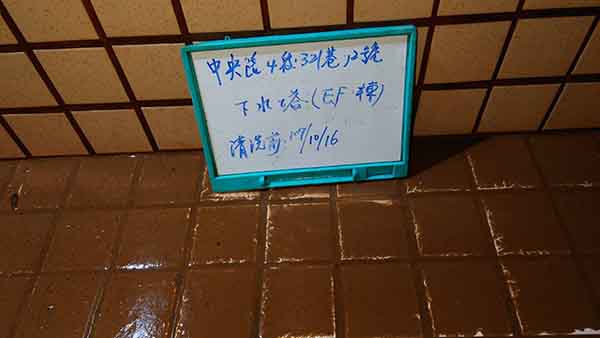 中央路4段321巷12號
下水塔(EF棟)
清洗前:107/10/16